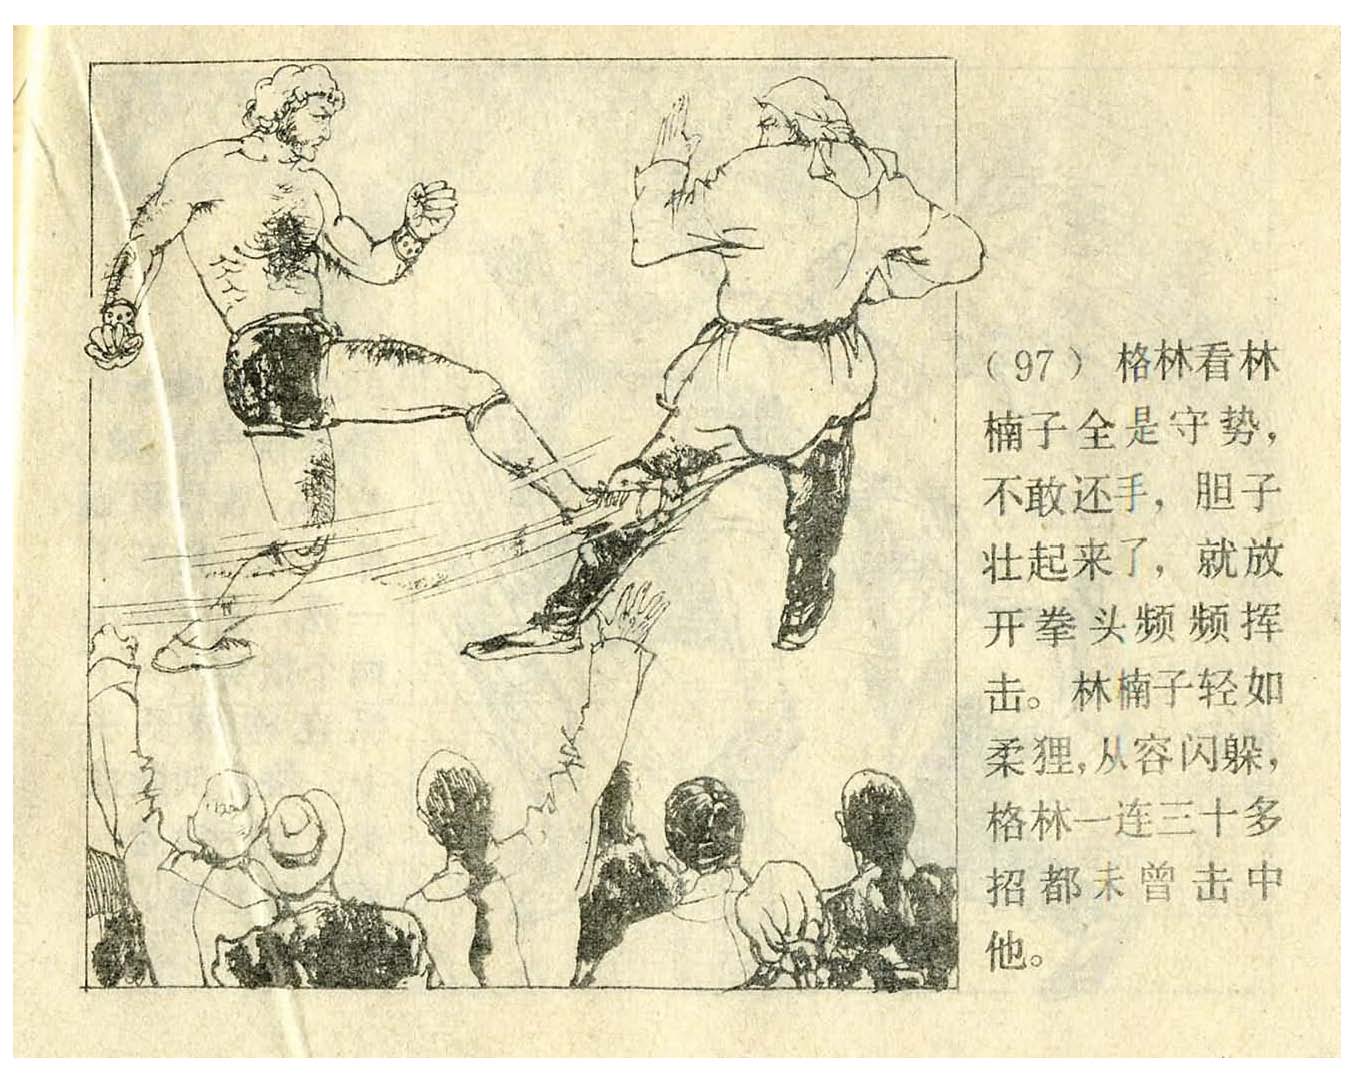 （97） 格林看林
楠子全是守势，
不敢还手，胆子
壮起来了，就放
开拳头频频挥
击。林楠子轻如
柔狸，从容闪躲，
格林一连三十多
招都未曾击中
他。